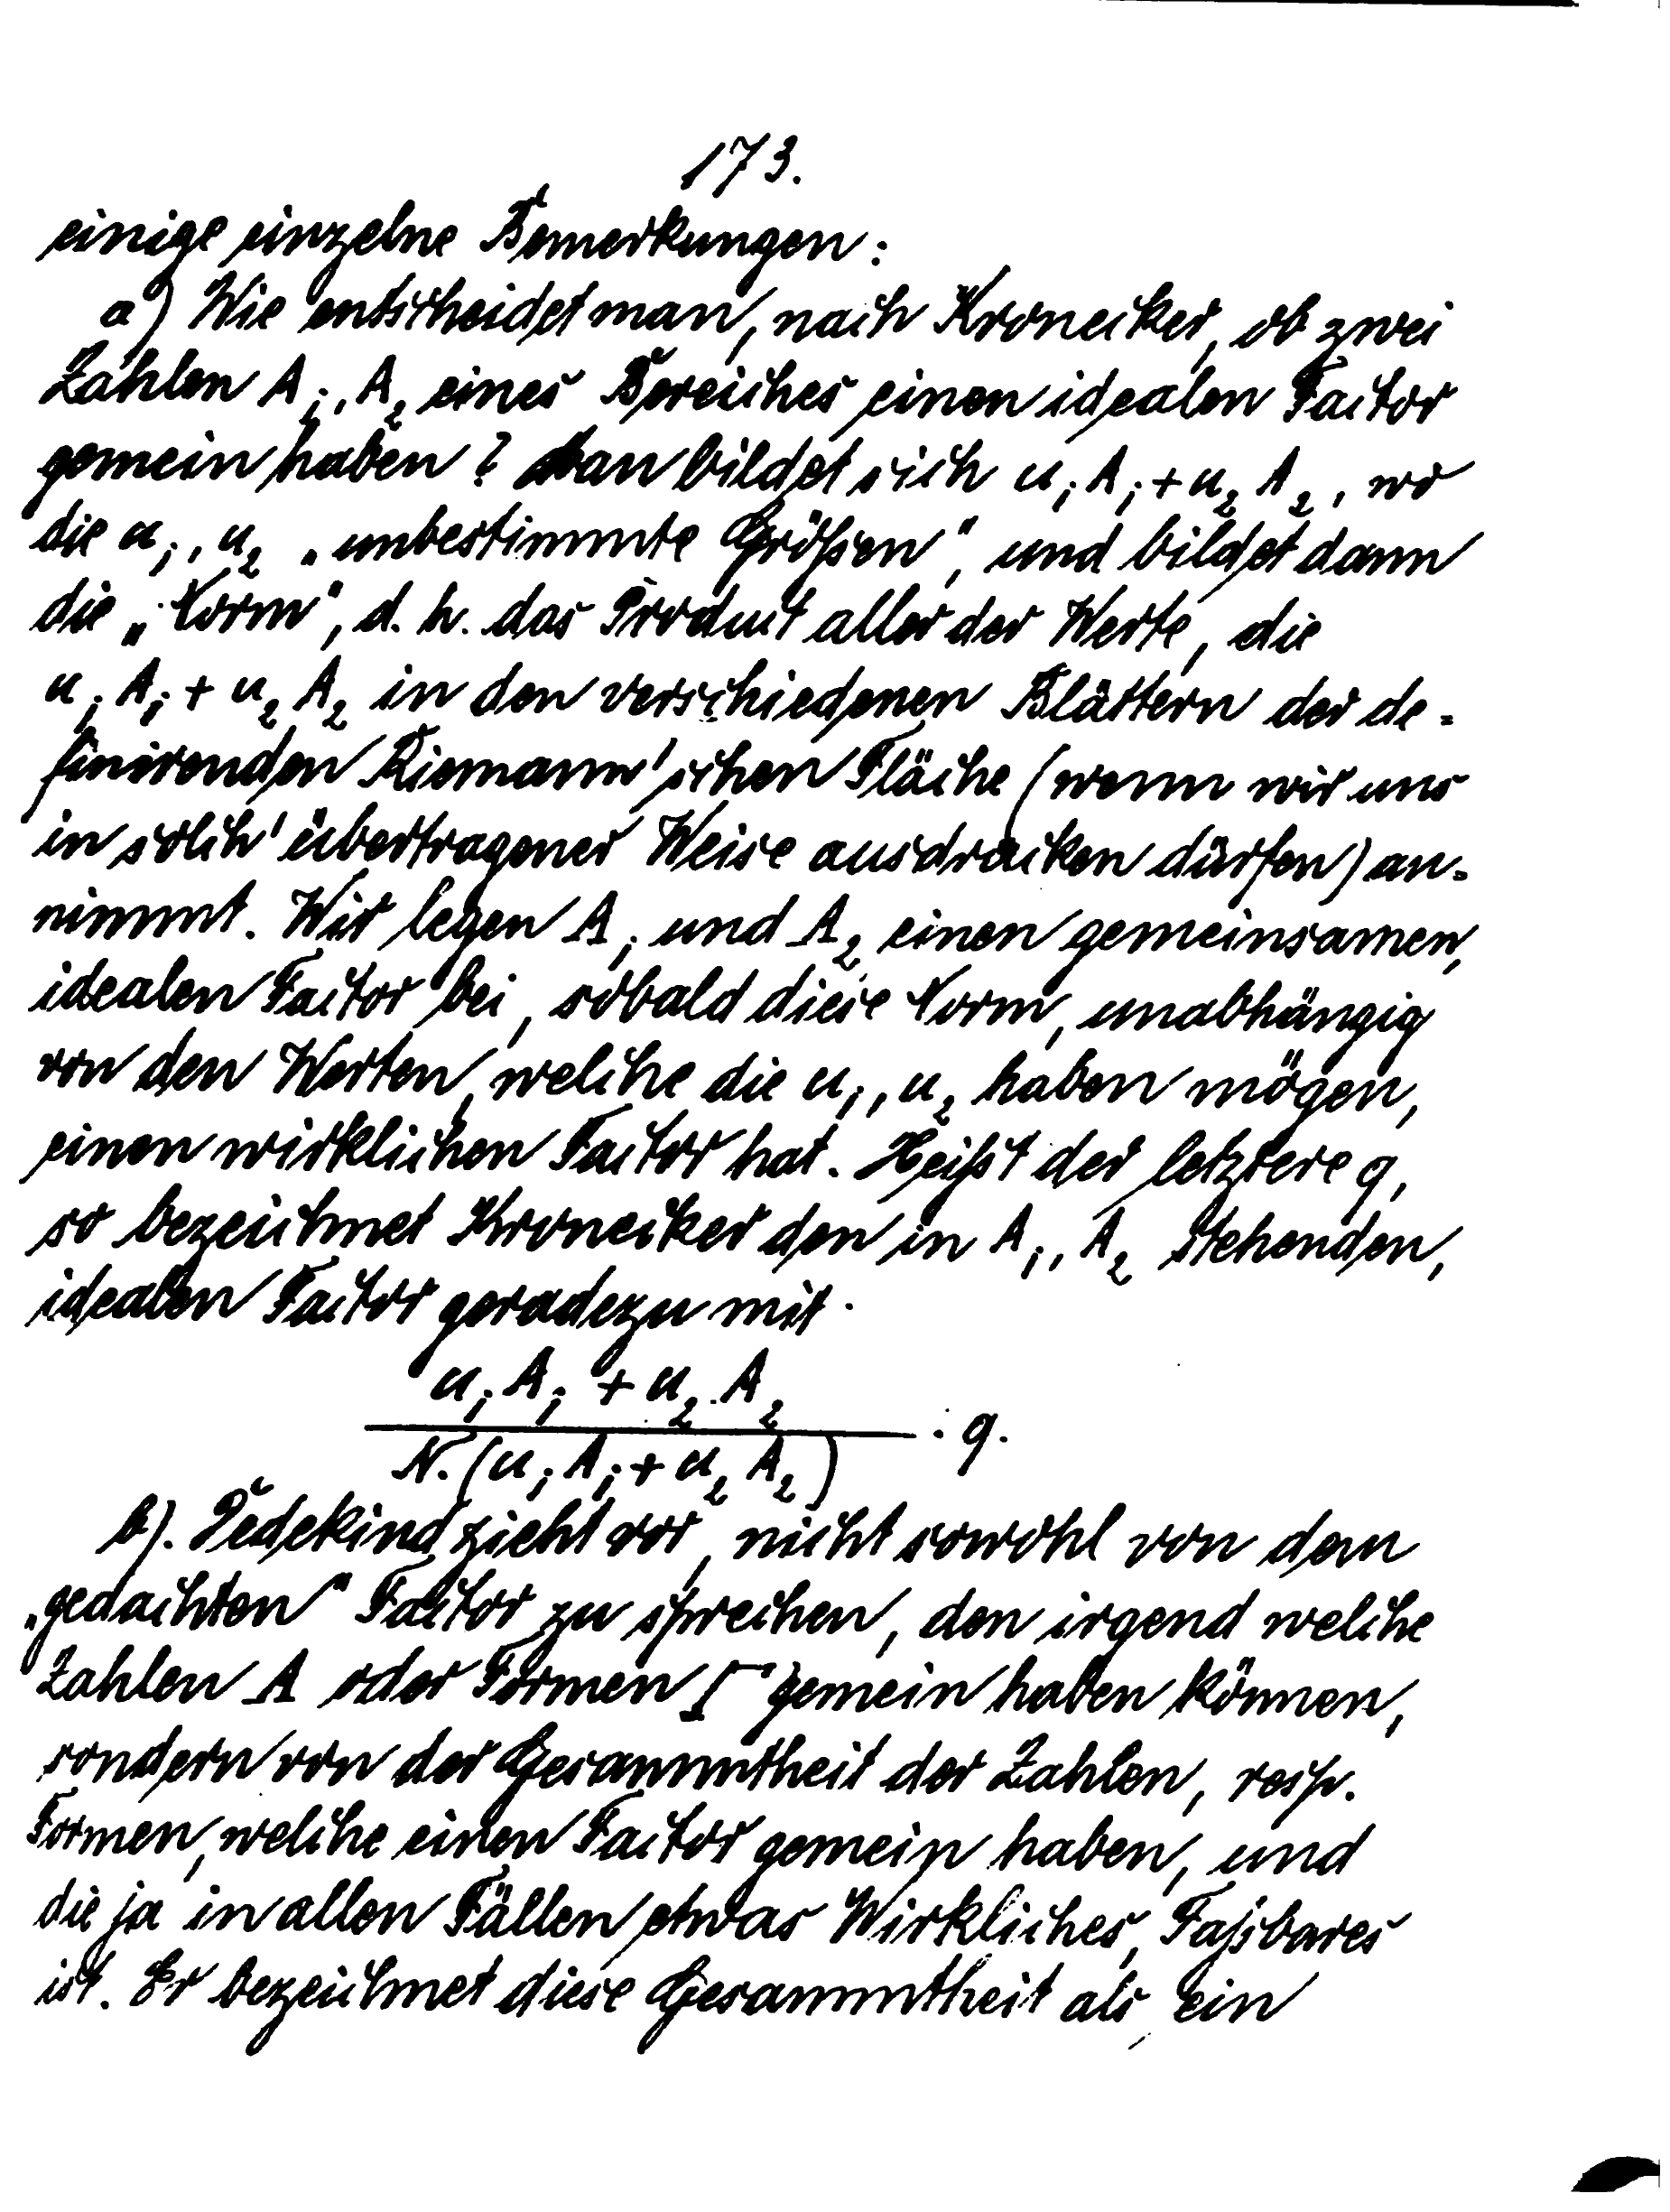 173.
einige einzelne Bemerkungen:
a) Wie entscheidet man, nach Kronecker, ob zwei
Zahlen A₁, A₂ eines Bereiches einen idealen Factor
gemein haben? Man bildet sich u₁A₁ + u₂A₂, wo
die u₁, u₂ „unbestimmte Größen“, und bildet dann
die „Norm“, d. h. das Product aller der Werte, die
u₁A₁ + u₂A₂ in den verschiedenen Blättern der de-
finirenden Riemann'schen Fläche (wenn wir uns
in solch' übertragener Weise ausdrücken dürfen) an-
nimmt. Wir legen A₁ und A₂ einen gemeinsamen,
idealen Factor bei, sobald diese Norm, unabhängig
von den Werten, welche die u₁, u₂ haben mögen,
einen wirklichen Factor hat. Heißt der letztere q,
so bezeichnet Kronecker den in A₁, A₂ stehenden,
idealen Factor geradezu mit
u₁A₁ + u₂A₂
N.(u₁A₁ + u₂A₂) · q.
b). Dedekind zieht vor, nicht sowohl von dem
„gedachten“ Factor zu sprechen, den irgend welche
Zahlen A oder Formen Γ gemein haben können,
sondern von der Gesammtheit der Zahlen, resp.
Formen, welche einen Factor gemein haben, und
die ja in allen Fällen etwas Wirkliches, Faßbares
ist. Er bezeichnet diese Gesammtheit als ein